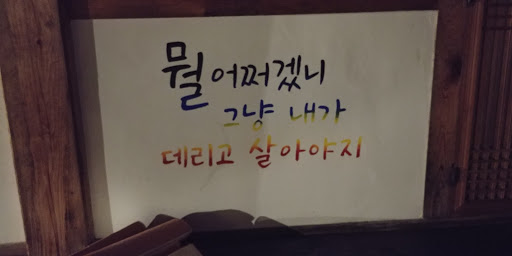 뭘 어쩌겠니
그냥 내가
데리고 살아야지